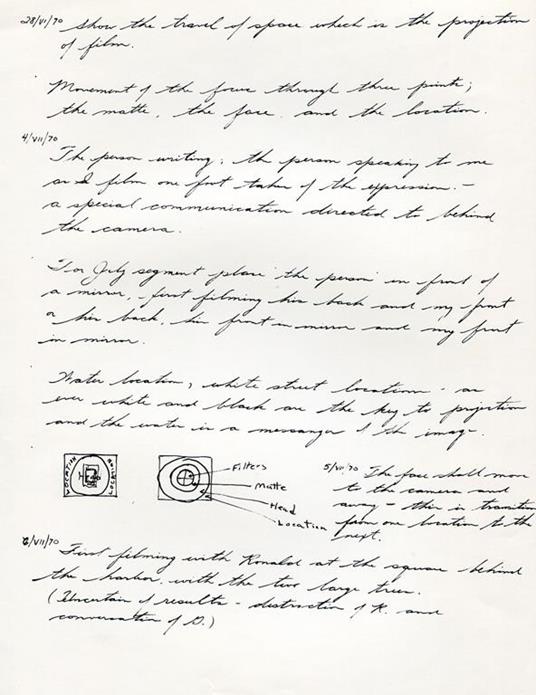 28/VI/70 Show the travel of space which is the projection
of film.
Movement of the focus through three points;
the matte, the face, and the location.
4/VII/70
The person writing, the person speaking to me
as I film one foot takes of the expression. –
a special communication directed to behind
the camera.
For July segment place the person in front of
a mirror, first filming his back and my front
or his back, his front in mirror and my front
in mirror.
Water location, white street location - as
ever white and black are the key to projection
and the water is a messenger of the image.
LOCATION
Filters
Matte
Head
Location
5/VII/70 The face shall move
to the camera and
away - this in transition
from one location to the
next.
6/VII/70
First filming with Ronald at the square behind
the harbor, with the two large trees.
(Uncertain of results - distraction of R. and
conversation of D.)